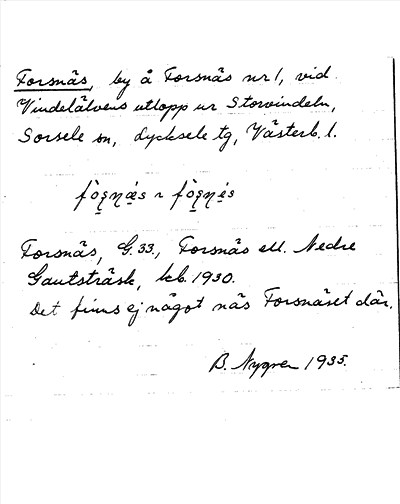 Forsnäs, by å Forsnäs nr 1, vid
Vindelälvens utlopp ur Storvindeln,
Sorsele sn, Lycksele tg, Västerb. l.
Forsnäs, G. 33., Forsnäs ell. Nedre
Gautsträsk, kb. 1930.
Det finns ej något näs Forsnäset där.
B. Nygren 1935.